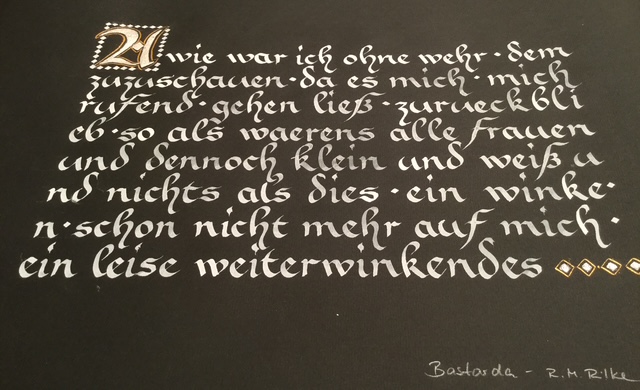 A wie war ich ohne wehr · dem
zuzuschauen · da es mich · mich
rufend · gehen ließ · zurueckbli
eb · so als waerens alle frauen
und dennoch klein und weiß u
nd nichts als dies · ein winke·
n · schon nicht mehr auf mich ·
ein leise weiterwinkendes
Bastarda - R.M. Rilke